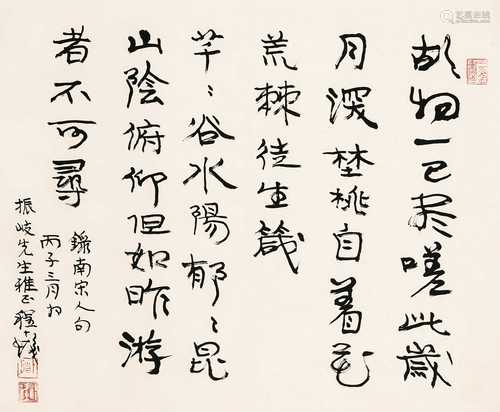 故物一已尽嗟此歲
月深埜桃自着花
荒棘徒生箴
芊〻谷水陽郁〻昆
山陰俯仰但如昨游
者不可尋
錄南宋人句
丙子三月为
振岐先生雅正程十髮